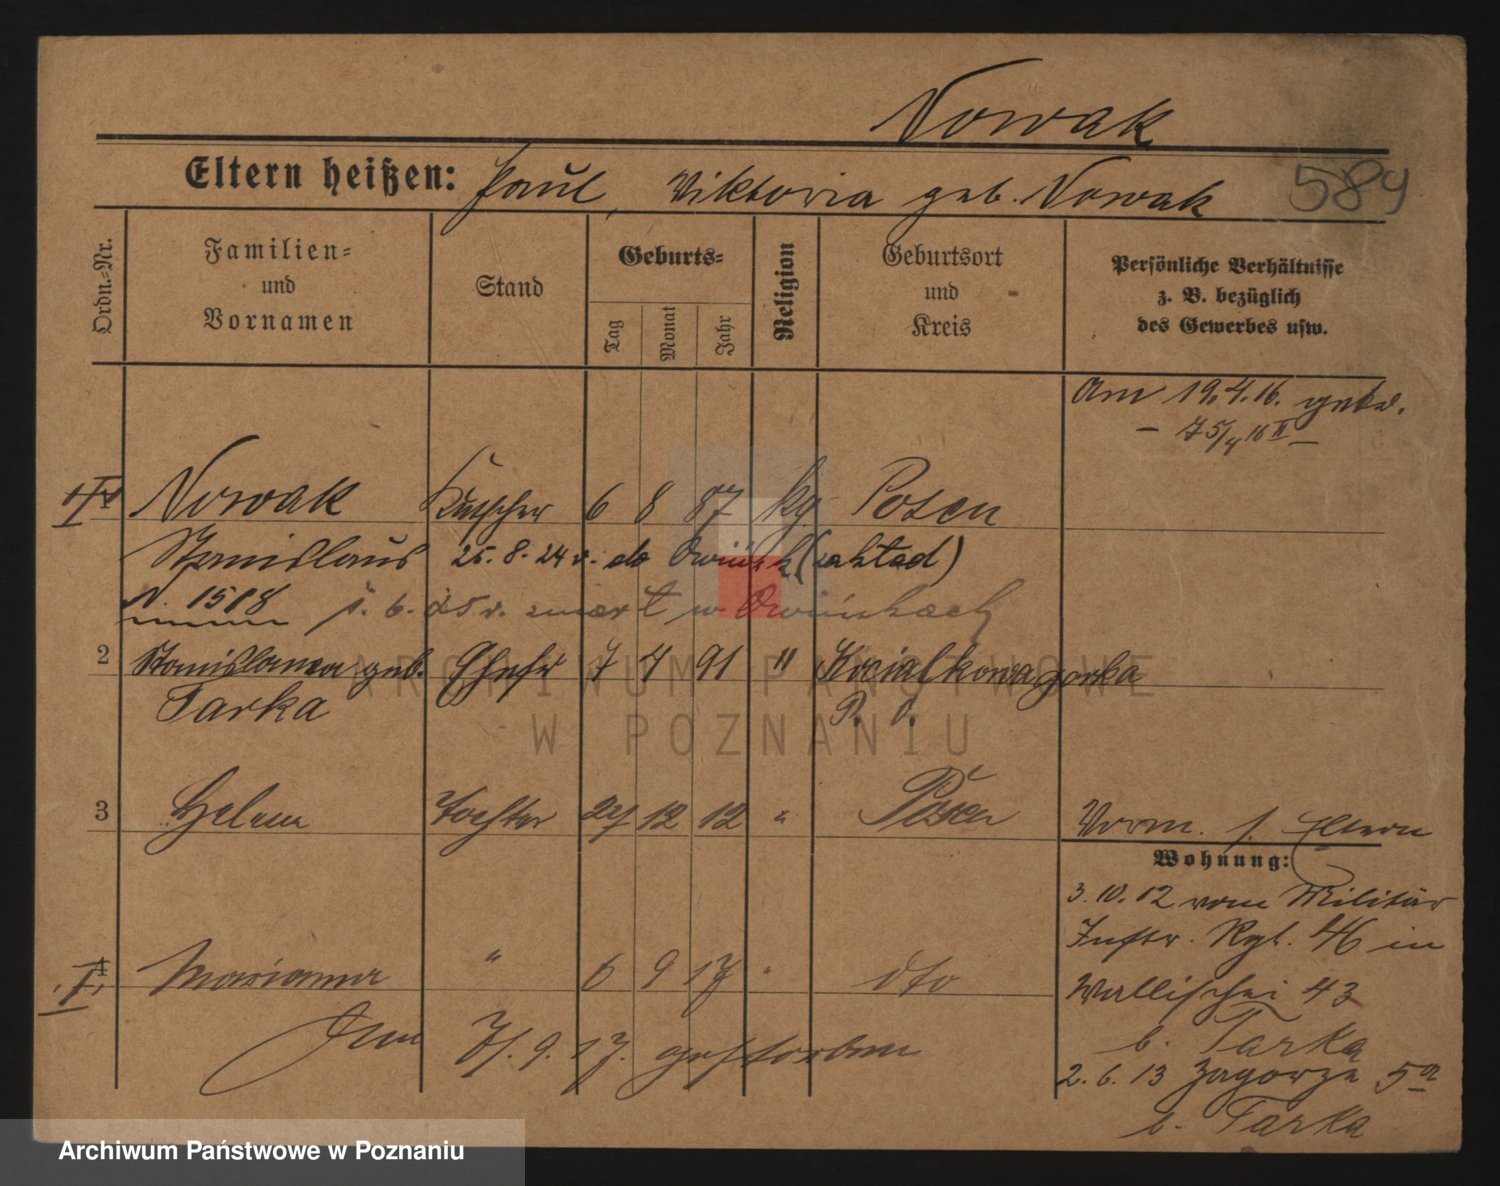 Nowak
Eltern heißen: Paul, Viktoria geb. Nowak
584
Ordn.-Nr.
Familien-
und
Vornamen
Stand
Geburts-
Tag
Monat
Jahr
Religion
Geburtsort
und
Kreis
Persönliche Verhältnisse
z. B. bezüglich
des Gewerbes usw.
Am 19.4.16.
Nowak Kutscher 6 8 87 kg Posen
Stanislaus 25. 8. 24 r. do Owińsk (zakład)
N. 1518
2 Stanislawa geb. Ehefr 7 4 91 " Kocialkowagorka
Tarka P. O.
3 Helena Tochter 27 12 12 " Posen
Vorm. s. Eltern
Wohnung:
3.10.12 vom Militär
Inftr. Rgt. 46 in
Wallischei 43
b. Tarka
2.6.13 Zagorze 5a
b. Tarka
4 Marianna " 6 9 17 " dto
9. 17. gestorben
ARCHIWUM PAŃSTWOWE
W POZNANIU
Archiwum Państwowe w Poznaniu